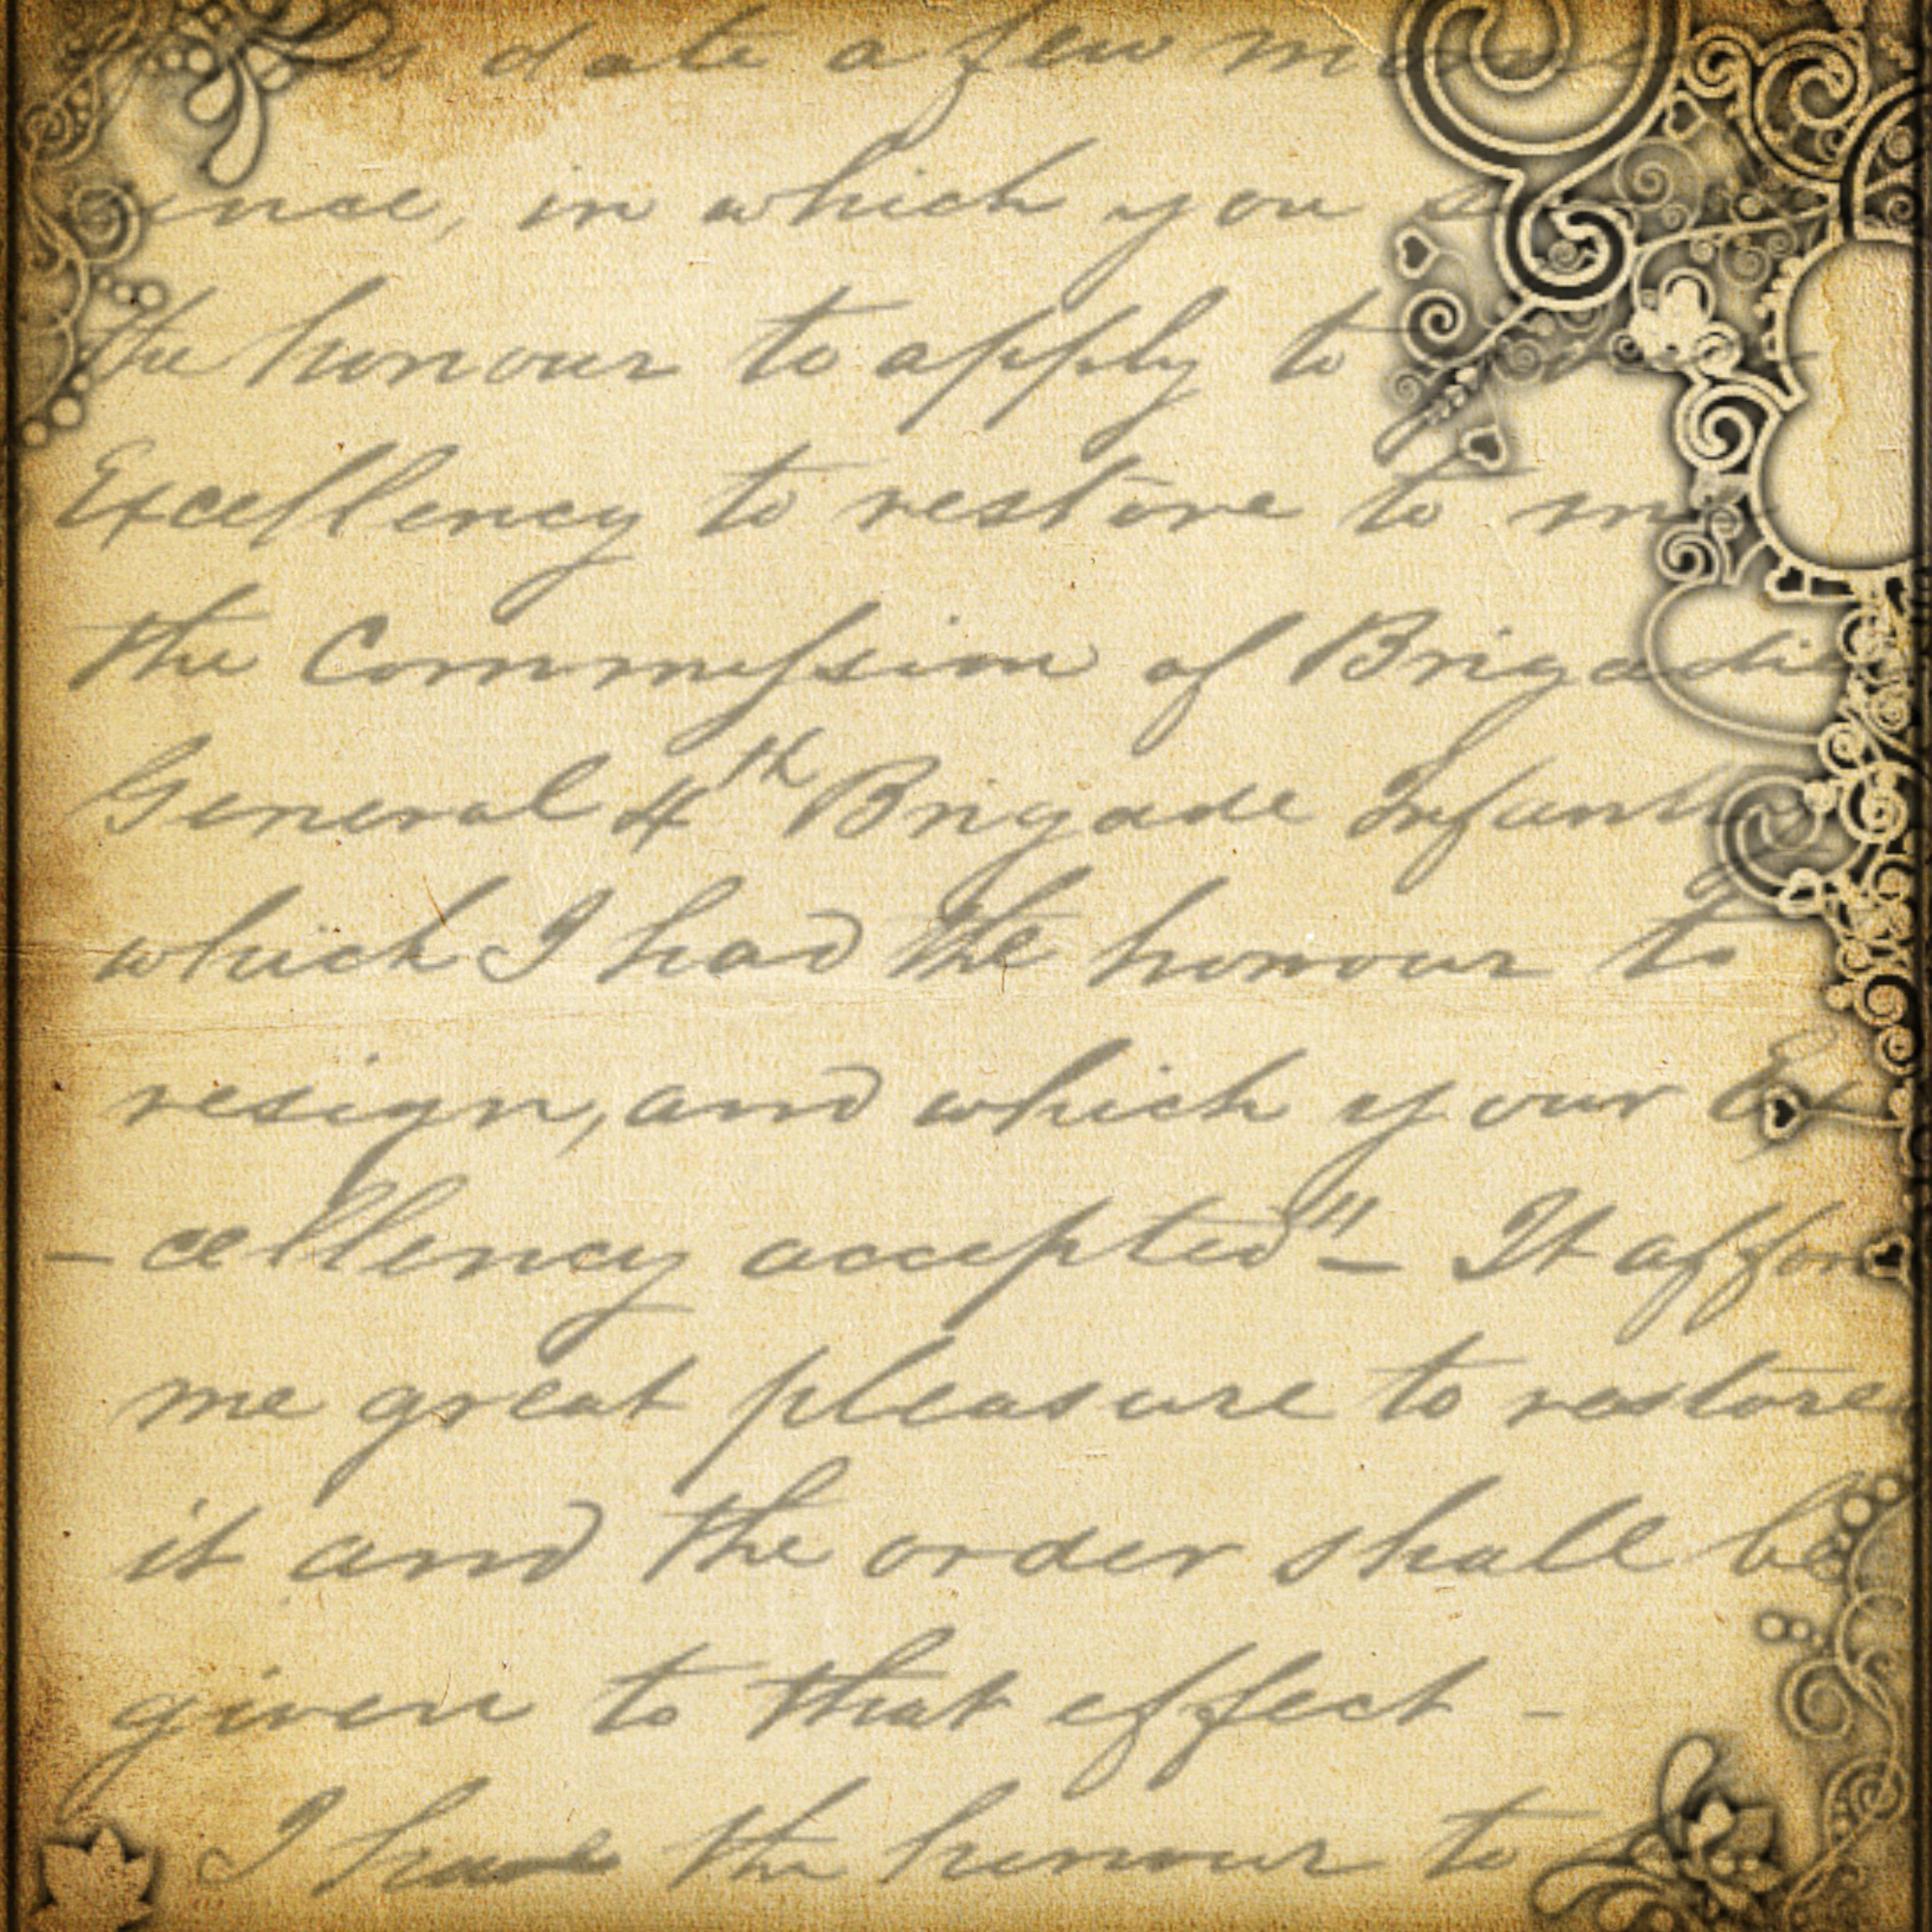 date a few
in which you
the honour to apply to
Excellency to restore to
the Commission of Brigadie
General 4th Brigade Infant
which I had the honour to
resign, and which your Ex
-cellency accepted" - It affor
me great pleasure to restore
it and the order shall be
given to that effect -
I have the honour to